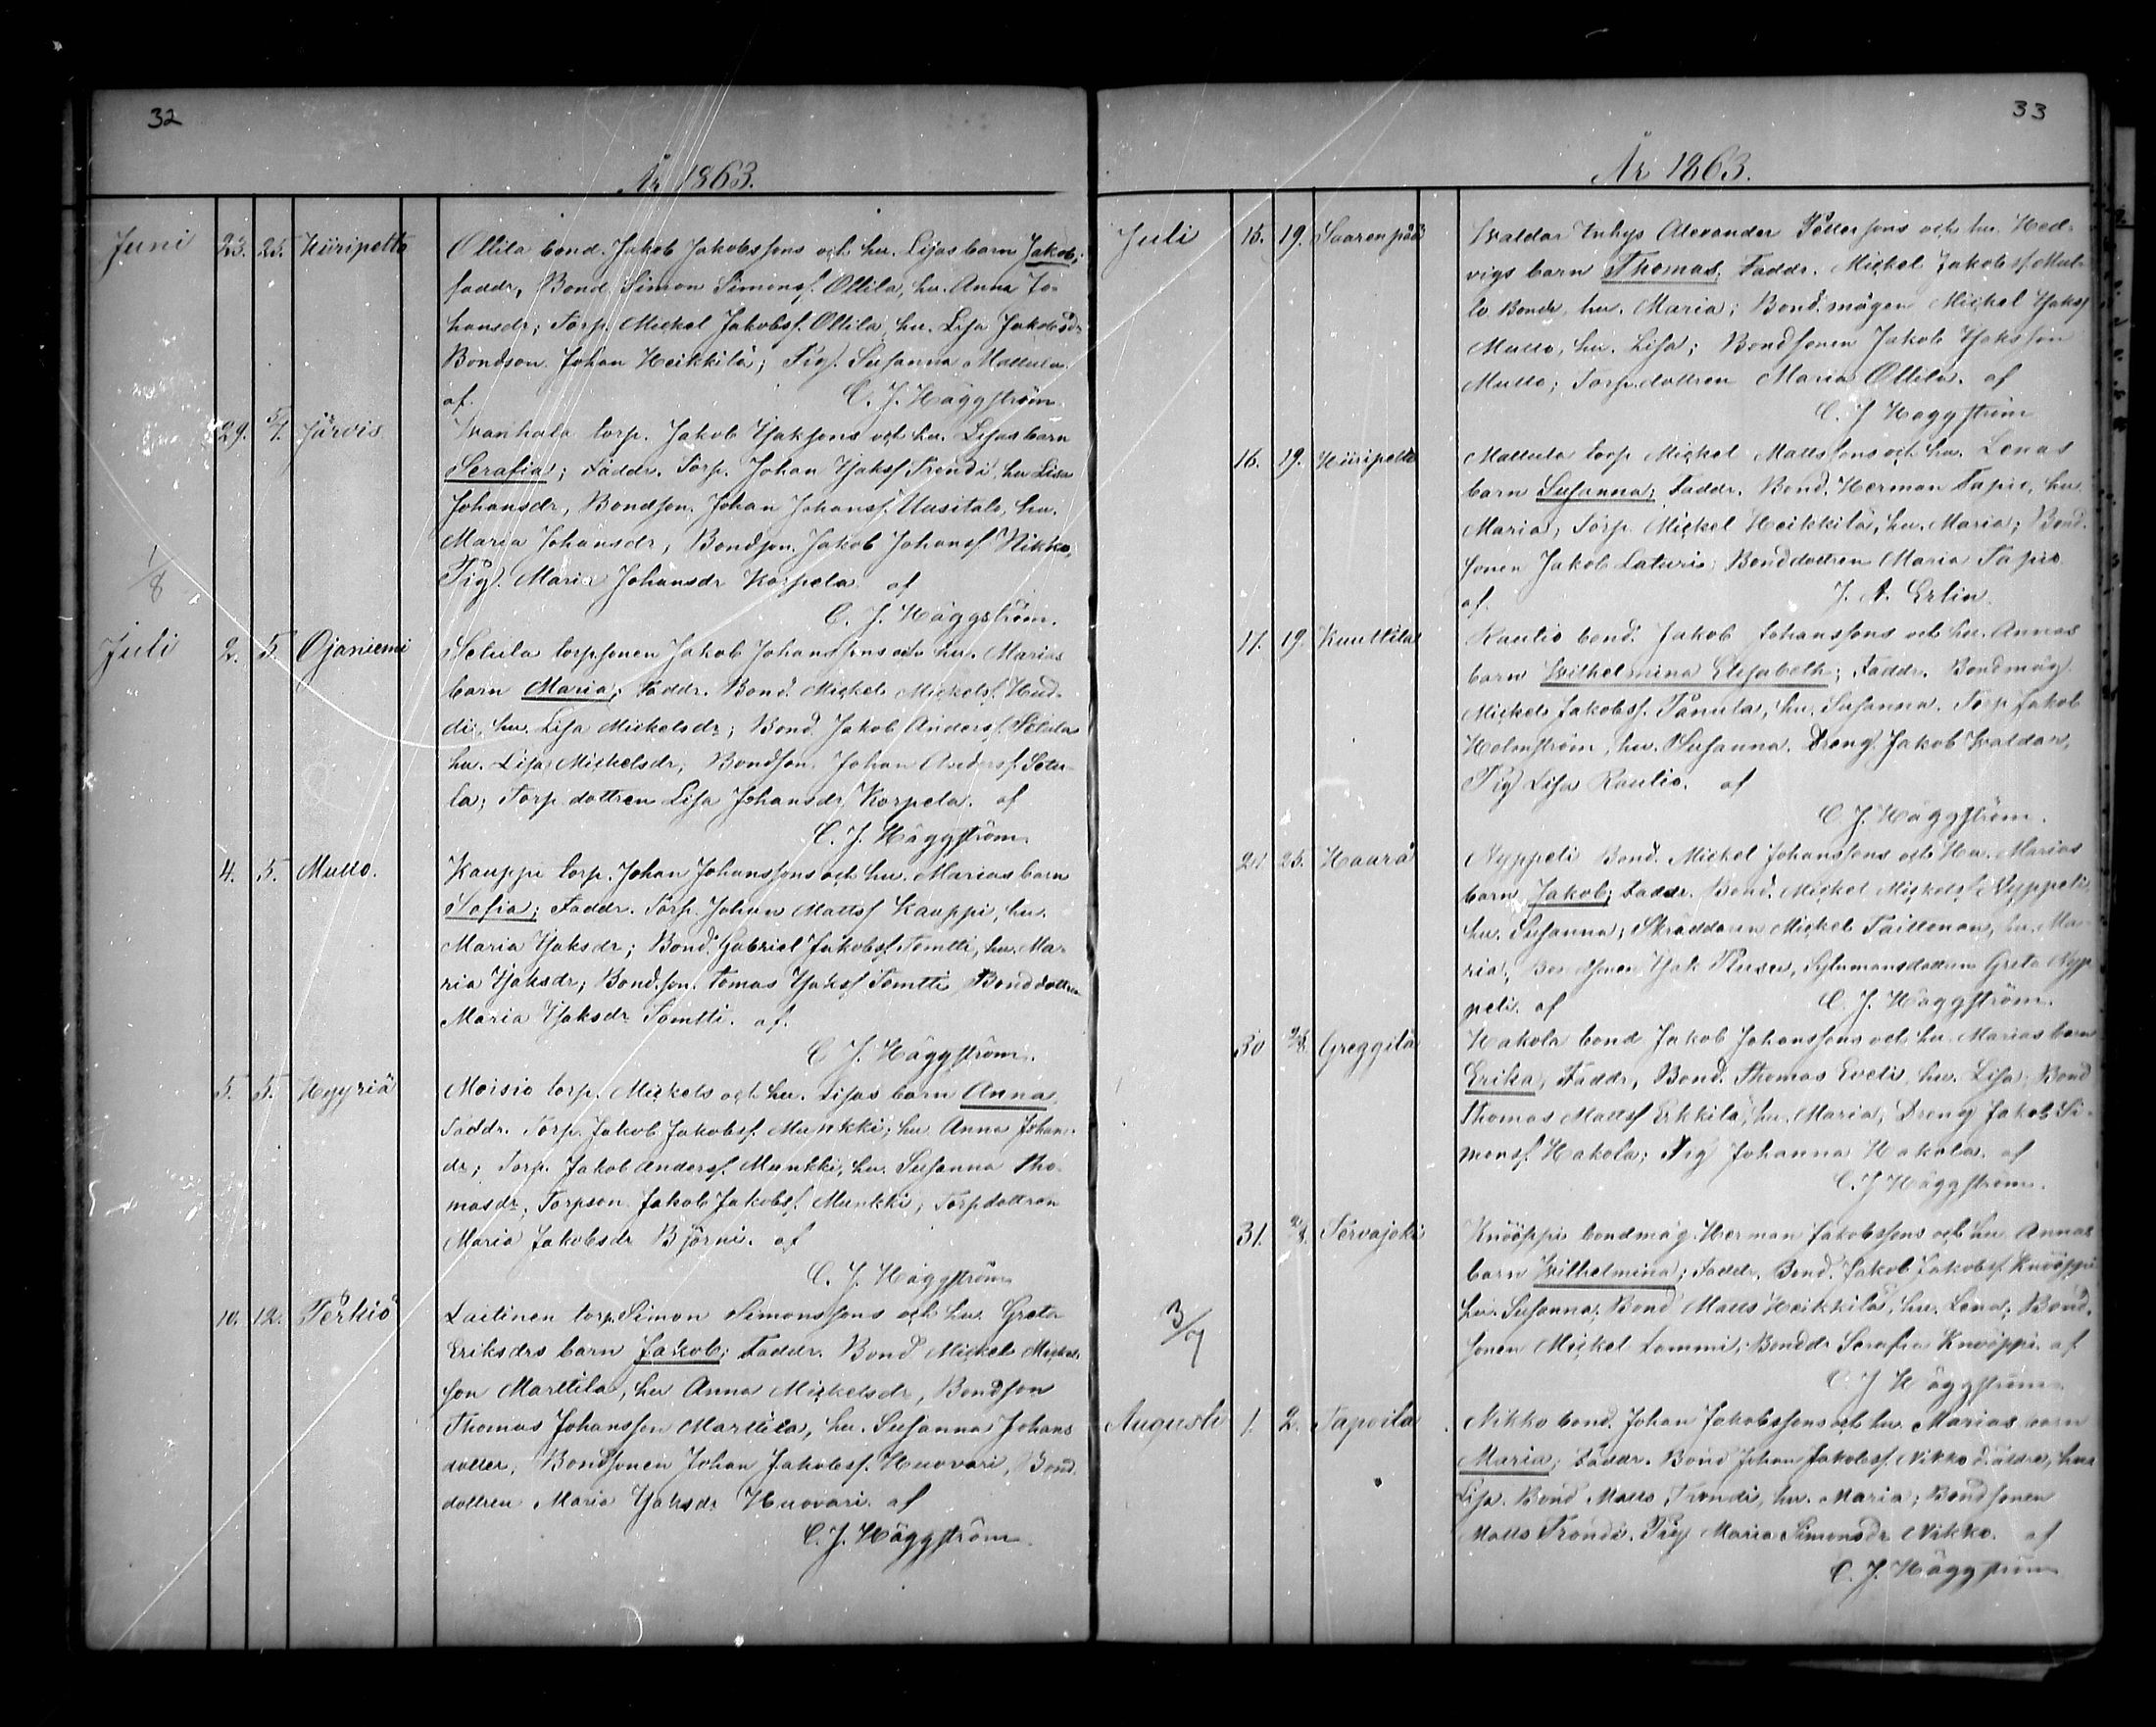 32
År 1863.
Juni 23. 25. Kiiripelto Ollila bond. Jakob Jakobssons och hu. Lisas barn Jakob;
faddr, Bond. Simon Simonss. Ollila, hu. Anna Jo-
hansdr; Torp. Mickel Jakobss. Ollila, hu. Lisa Jakobsdr
Bondson Johan Heikkilä; Pig. Susanna Mattula
af C. J. Häggström
29. 5/7. Järvis Wanhala torp. Jakob Isakssons och hu. Lisas barn
Serafia; Faddr. Torp. Johan Isakss. Trendi, hu Lisa
Johansdr, Bondson. Johan Johanss. Uusitalo, hu.
Maria Johansdr, Bondson. Jakob Johanss. Nikko,
1/8
Pig. Maria Johansdr Korpela af
C. J. Häggström.
Juli 2. 5. Ojaniemi torpsonen Jakob Johanssons och hu. Marias
barn Maria; Faddr. Bond. Mickel Mickelss. Hud-
di, hu. Lisa Mickelsdr; Bond. Jakob Anderss.
hu. Lisa Mickelsdr; Bondson. Johan Anderss.
la; Torpdottren Lisa Johansdr Korpela. af
C. J. Häggström
4. 5. Mullo. Kauppi torp. Johan Johanssons och hu. Marias barn
Sofia; Faddr. Torp. Johan Mattss Kauppi, hu.
Maria Isaksdr; Bond. Gabriel Jakobss. Tomtti, hu. Ma-
ria Isaksdr; Bondson. Tomas Isakss Tomtti Bonddottren
Maria Isaksdr Tomtti. af.
C. J. Häggström.
5. 5. Hyyriä Moisio torp. Mickels och hu. Lisas barn Anna,
Faddr. Torp. Jakob Jakobss. Munkki; hu Anna Johan-
dr; Torp. Jakob Anderss. Munkki, hu. Susanna Tho-
masdr, Torpson Jakob Jakobss. Munkki, Torpdottren
Maria Jakobsdr Björni. af
C. J. Häggström
10. 12. Perhiö Laitinen torp. Simon Simonssons och hu. Greta
Eriksdrs barn Jakob; Faddr. Bond Mickel Mickels-
son Marttila, hu Anna Mickelsdr, Bondson
Thomas Johansson Marttila, hu. Susanna Johans
dotter, Bondsonen Johan Jakobss. Huovari, Bond-
dottren Maria Isaksdr Huovari. af
C. J. Häggström
33
År 1863.
Juli 15. 19. Saarenpää Waldar Alexander hu. Hed-
vigs barn Thomas, Faddr. Mickel Jakobss. Mul-
lo Bonde, hu. Maria; Bond.mågen Mickel Isakss
Mullo, hu. Lisa; Bondsonen Jakob Isaksson
Mullo; Torp.dottren Maria Ollila. af
C. J. Häggström
16. 19. Kiiripelto Mattula torp Mickel Mattssons och hu. Lenas
barn Susanna; Faddr. Bond. Herman Tapio, hu
Maria, Torp. Mickel Heikkilä, hu. Maria; Bond-
sonen Jakob Laturi; Bonddottren Maria Tapio
af. J. A. Erlin.
17. 19. Kuuttila Rautio bond. Jakob Johanssons och hu. Annas
barn Wilhelmina Elisabeth; Faddr. Bondmåg
Mickel Jakobss. Pånula, hu. Susanna. Torp Jakob
Holmström, hu. Susanna. Dreng. Jakob Waldar,
Pig Lisa Rautio. af
C. J. Häggström.
25. Haarä Nyppeli Bond. Mickel Johanssons och Hu. Marias
barn Jakob; Faddr. Bond. Mickel Mickelss Nyppeli,
hu. Susanna; Skräddaren Mickel hu. Ma-
ria; Bondsonen Isak Greta Nyp
peli. af C. J. Häggström.
30 Greggilä Hakola bond Jakob Johanssons och hu. Marias barn
Erika, Faddr, Bond. Thomas Eveli, hu. Lisa; Bond
Thomas Mattss Erkkilä, hu. Maria, Dreng Jakob Si-
monss. Hakola; Pig Johanna Hakola. af
C. J. Häggström.
31. 2/8. Tervajoki Knööppi bondmåg. Herman Jakobssons och hu Annas
barn Wilhelmina; Faddr. Bond. Jakob Jakobss. Knööppi
3/7
hu. Susanna, Bond Matts Heikkilä, hu. Lena; Bond-
sonen Mickel Lammi; Bonddr Serafia Knööppi. af
C. J. Häggström
Augusti 1. 2. Tapoila Nikko bond. Johan Jakobssons och hu. Marias barn
Maria; Faddr. Bond Johan Jakobss. Nikko d. äldre, hu
Lisa. Bond Matts Trondi, hu. Maria; Bondsonen
Matts Trondi. Pig Maria Simonsdr Nikko. af
C. J. Häggström